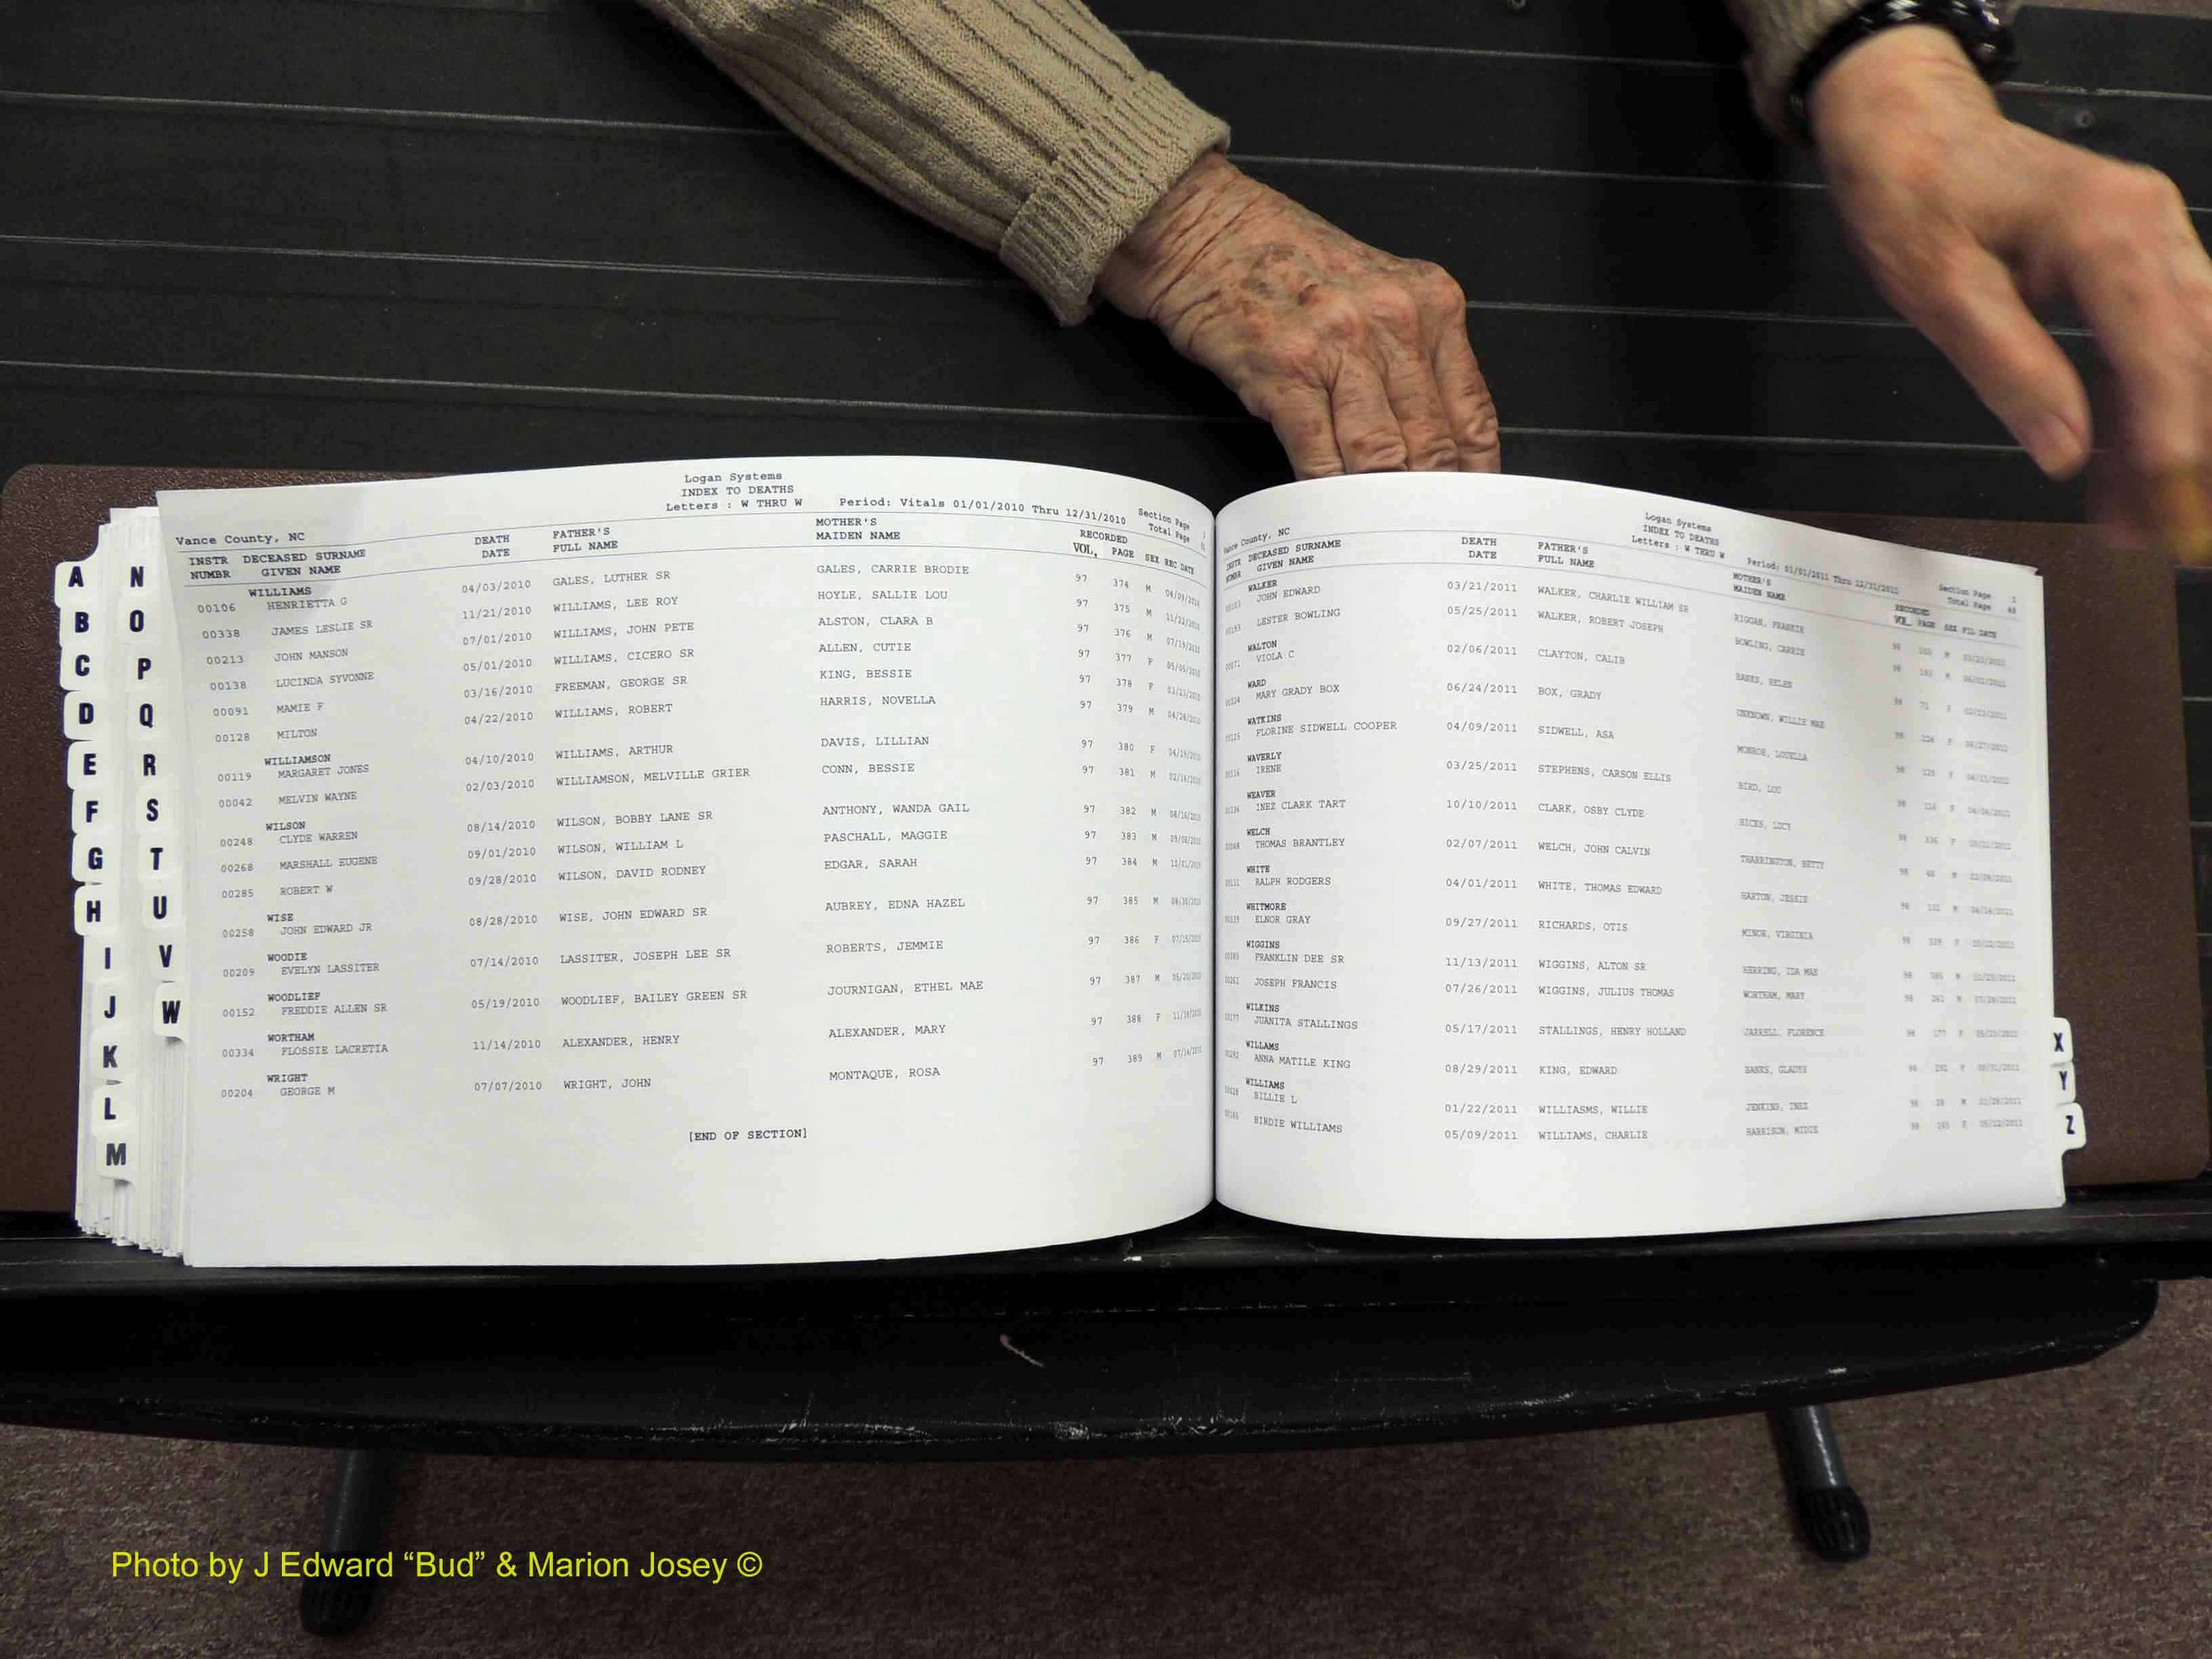 Logan Systems
INDEX TO DEATHS
Letters : W THRU W Period: Vitals 01/01/2010 Thru 12/31/2010 Section Page
Total Page
Vance County, NC
INSTR DECEASED SURNAME DEATH FATHER'S MOTHER'S RECORDED
NUMBR GIVEN NAME DATE FULL NAME MAIDEN NAME VOL, PAGE SEX REC DATE
WILLIAMS
00106 HENRIETTA G 04/03/2010 GALES, LUTHER SR GALES, CARRIE BRODIE 97 374 M 04/09/2010
00338 JAMES LESLIE SR 11/21/2010 WILLIAMS, LEE ROY HOYLE, SALLIE LOU 97 375 M 11/22/2010
00213 JOHN MANSON 07/01/2010 WILLIAMS, JOHN PETE ALSTON, CLARA B 97 376 M 07/19/2010
00138 LUCINDA SYVONNE 05/01/2010 WILLIAMS, CICERO SR ALLEN, CUTIE 97 377 F 05/05/2010
00091 MAMIE F 03/16/2010 FREEMAN, GEORGE SR KING, BESSIE 97 378 F 03/23/2010
00128 MILTON 04/22/2010 WILLIAMS, ROBERT HARRIS, NOVELLA 97 379 M 04/28/2010
WILLIAMSON
00119 MARGARET JONES 04/10/2010 WILLIAMS, ARTHUR DAVIS, LILLIAN 97 380 F 04/19/2010
00042 MELVIN WAYNE 02/03/2010 WILLIAMSON, MELVILLE GRIER CONN, BESSIE 97 381 M 02/16/2010
WILSON
00248 CLYDE WARREN 08/14/2010 WILSON, BOBBY LANE SR ANTHONY, WANDA GAIL 97 382 M 08/16/2010
00268 MARSHALL EUGENE 09/01/2010 WILSON, WILLIAM L PASCHALL, MAGGIE 97 383 M 09/08/2010
00285 ROBERT W 09/28/2010 WILSON, DAVID RODNEY EDGAR, SARAH 97 384 M 10/01/2010
WISE
00258 JOHN EDWARD JR 08/28/2010 WISE, JOHN EDWARD SR AUBREY, EDNA HAZEL 97 385 M 08/30/2010
WOODIE
00209 EVELYN LASSITER 07/14/2010 LASSITER, JOSEPH LEE SR ROBERTS, JEMMIE 97 386 F 07/15/2010
WOODLIEF
00152 FREDDIE ALLEN SR 05/19/2010 WOODLIEF, BAILEY GREEN SR JOURNIGAN, ETHEL MAE 97 387 M 05/20/2010
WORTHAM
00334 FLOSSIE LACRETIA 11/14/2010 ALEXANDER, HENRY ALEXANDER, MARY 97 388 F
WRIGHT
00204 GEORGE M 07/07/2010 WRIGHT, JOHN MONTAQUE, ROSA 97 389 M 07/14/2010
[END OF SECTION]
A
B
C
D
E
F
G
H
I
J
K
L
M
N
O
P
Q
R
S
T
U
V
W
Logan Systems
INDEX TO DEATHS
Letters : W THRU W Period: 01/01/2011 Thru 12/31/2011 Section Page 1
Total Page
Vance County, NC
INSTR DECEASED SURNAME DEATH FATHER'S MOTHER'S RECORDED
NUMBR GIVEN NAME DATE FULL NAME MAIDEN NAME VOL, PAGE SEX FIL DATE
WALKER
JOHN EDWARD 03/21/2011 WALKER, CHARLIE WILLIAM SR RIGGAN, FRANKIE 98 M
LESTER BOWLING 05/25/2011 WALKER, ROBERT JOSEPH BOWLING, CARRIE 98 M
WALTON
VIOLA C 02/06/2011 CLAYTON, CALIB BANKS, HELEN 98 71 F
WARD
MARY GRADY BOX 06/24/2011 BOX, GRADY UNKNOWN, WILLIE MAE 98 F
WATKINS
FLORINE SIDWELL COOPER 04/09/2011 SIDWELL, ASA MONROE, LOUELLA 98 125 F
WAVERLY
IRENE 03/25/2011 STEPHENS, CARSON ELLIS BIRD, LOU 98 116 F
WEAVER
INEZ CLARK TART 10/10/2011 CLARK, OSBY CLYDE HICKS, LUCY 98 336 F
WELCH
THOMAS BRANTLEY 02/07/2011 WELCH, JOHN CALVIN THARRINGTON, BETTY 98 M
WHITE
RALPH RODGERS 04/01/2011 WHITE, THOMAS EDWARD HARTON, JESSIE 98 M
WHITMORE
ELNOR GRAY 09/27/2011 RICHARDS, OTIS MINOR, VIRGINIA 98 F
WIGGINS
FRANKLIN DEE SR 11/13/2011 WIGGINS, ALTON SR HERRING, IDA MAE 98 M
JOSEPH FRANCIS 07/26/2011 WIGGINS, JULIUS THOMAS WORTHAM, MARY 98 261 M
WILKINS
JUANITA STALLINGS 05/17/2011 STALLINGS, HENRY HOLLAND JARRELL, FLORENCE 98 177 F
WILLAMS
ANNA MATILE KING 08/29/2011 KING, EDWARD BANKS, GLADYS 98 292 F
WILLIAMS
BILLIE L 01/22/2011 WILLIASMS, WILLIE JENKINS, INEZ 98 28 M
BIRDIE WILLIAMS 05/09/2011 WILLIAMS, CHARLIE HARRISON, MIDIE 98 165 F
X
Y
Z
Photo by J Edward “Bud” & Marion Josey ©